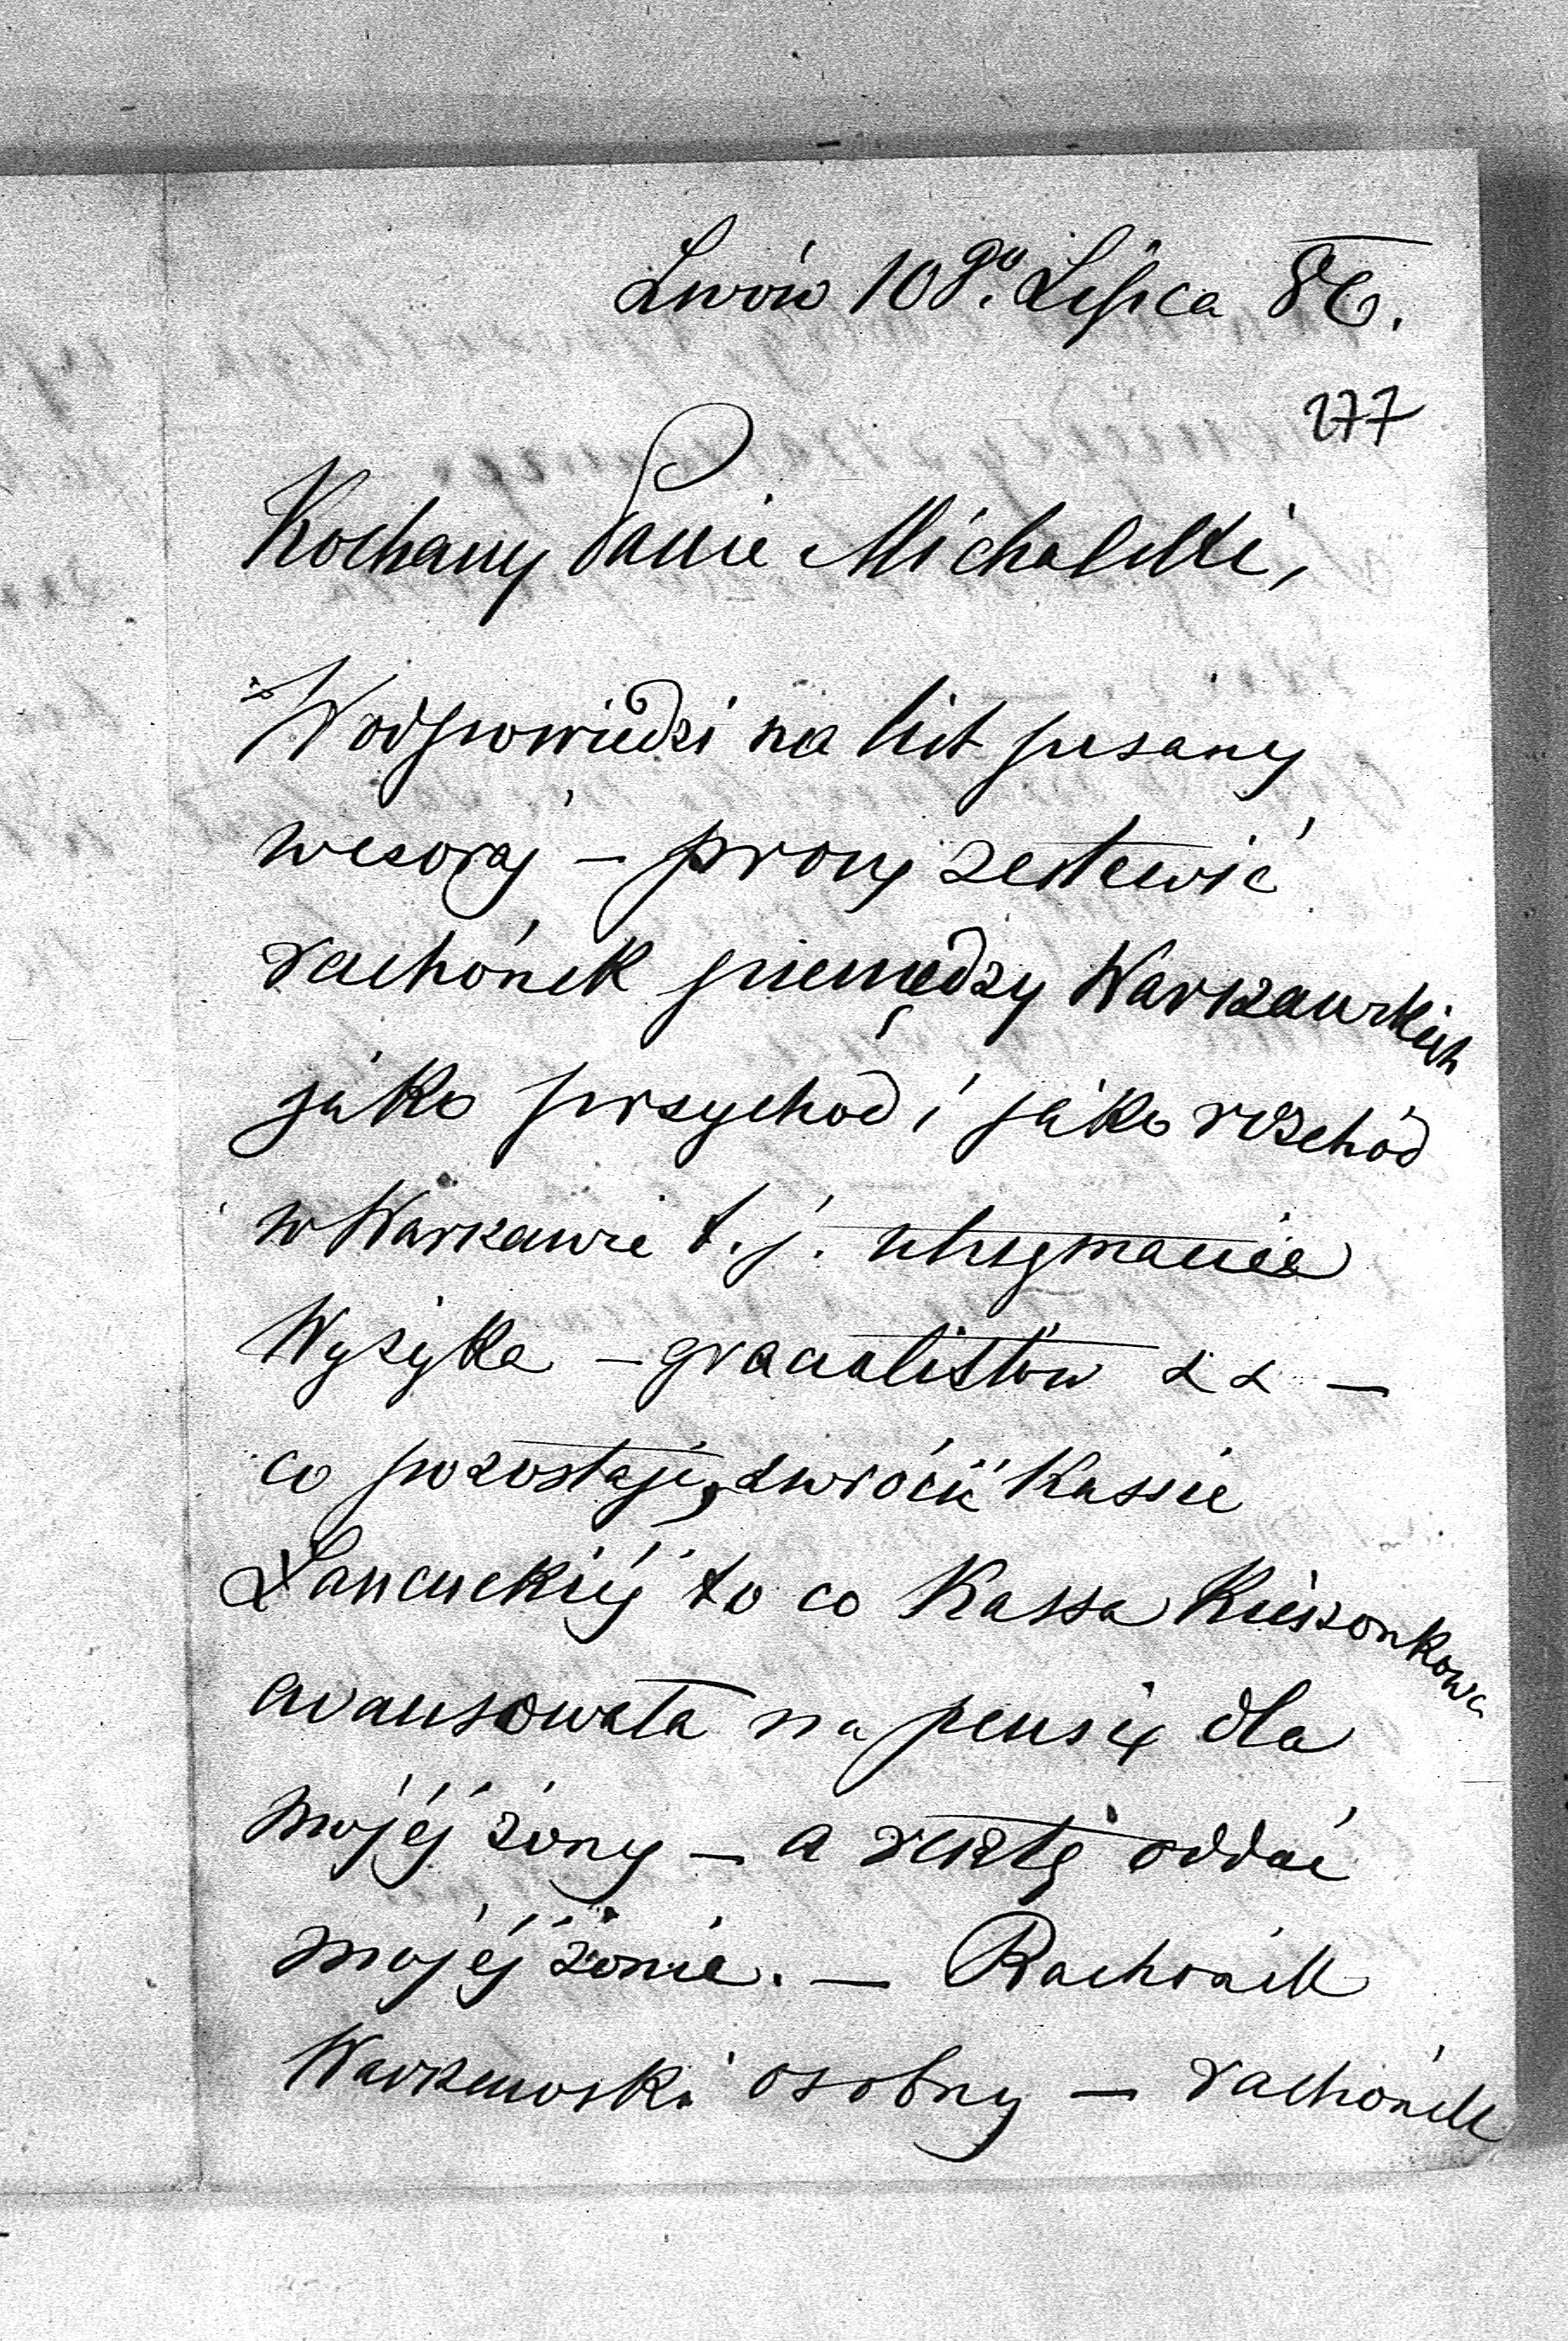 Lwów 10go. Lipca 86.
277
Kochany Panie Michalski,
W odpowiedzi na list pisany
wczoraj – proszę zestawić
rachónek pieniędzy Warszawskich
jako przychód i jako rozchód
w Warszawie t. j. utrzymanie
Wyżyka – gracialistów & & –
co pozostaje, zwrócić Kassie
Łańcuckiéj to co Kassa Kieszonkowa
avansowała na pensię dla
mojéj żony – a resztę oddać
mojéj żonie. – Rachónek
Warszawski osobny – rachónek